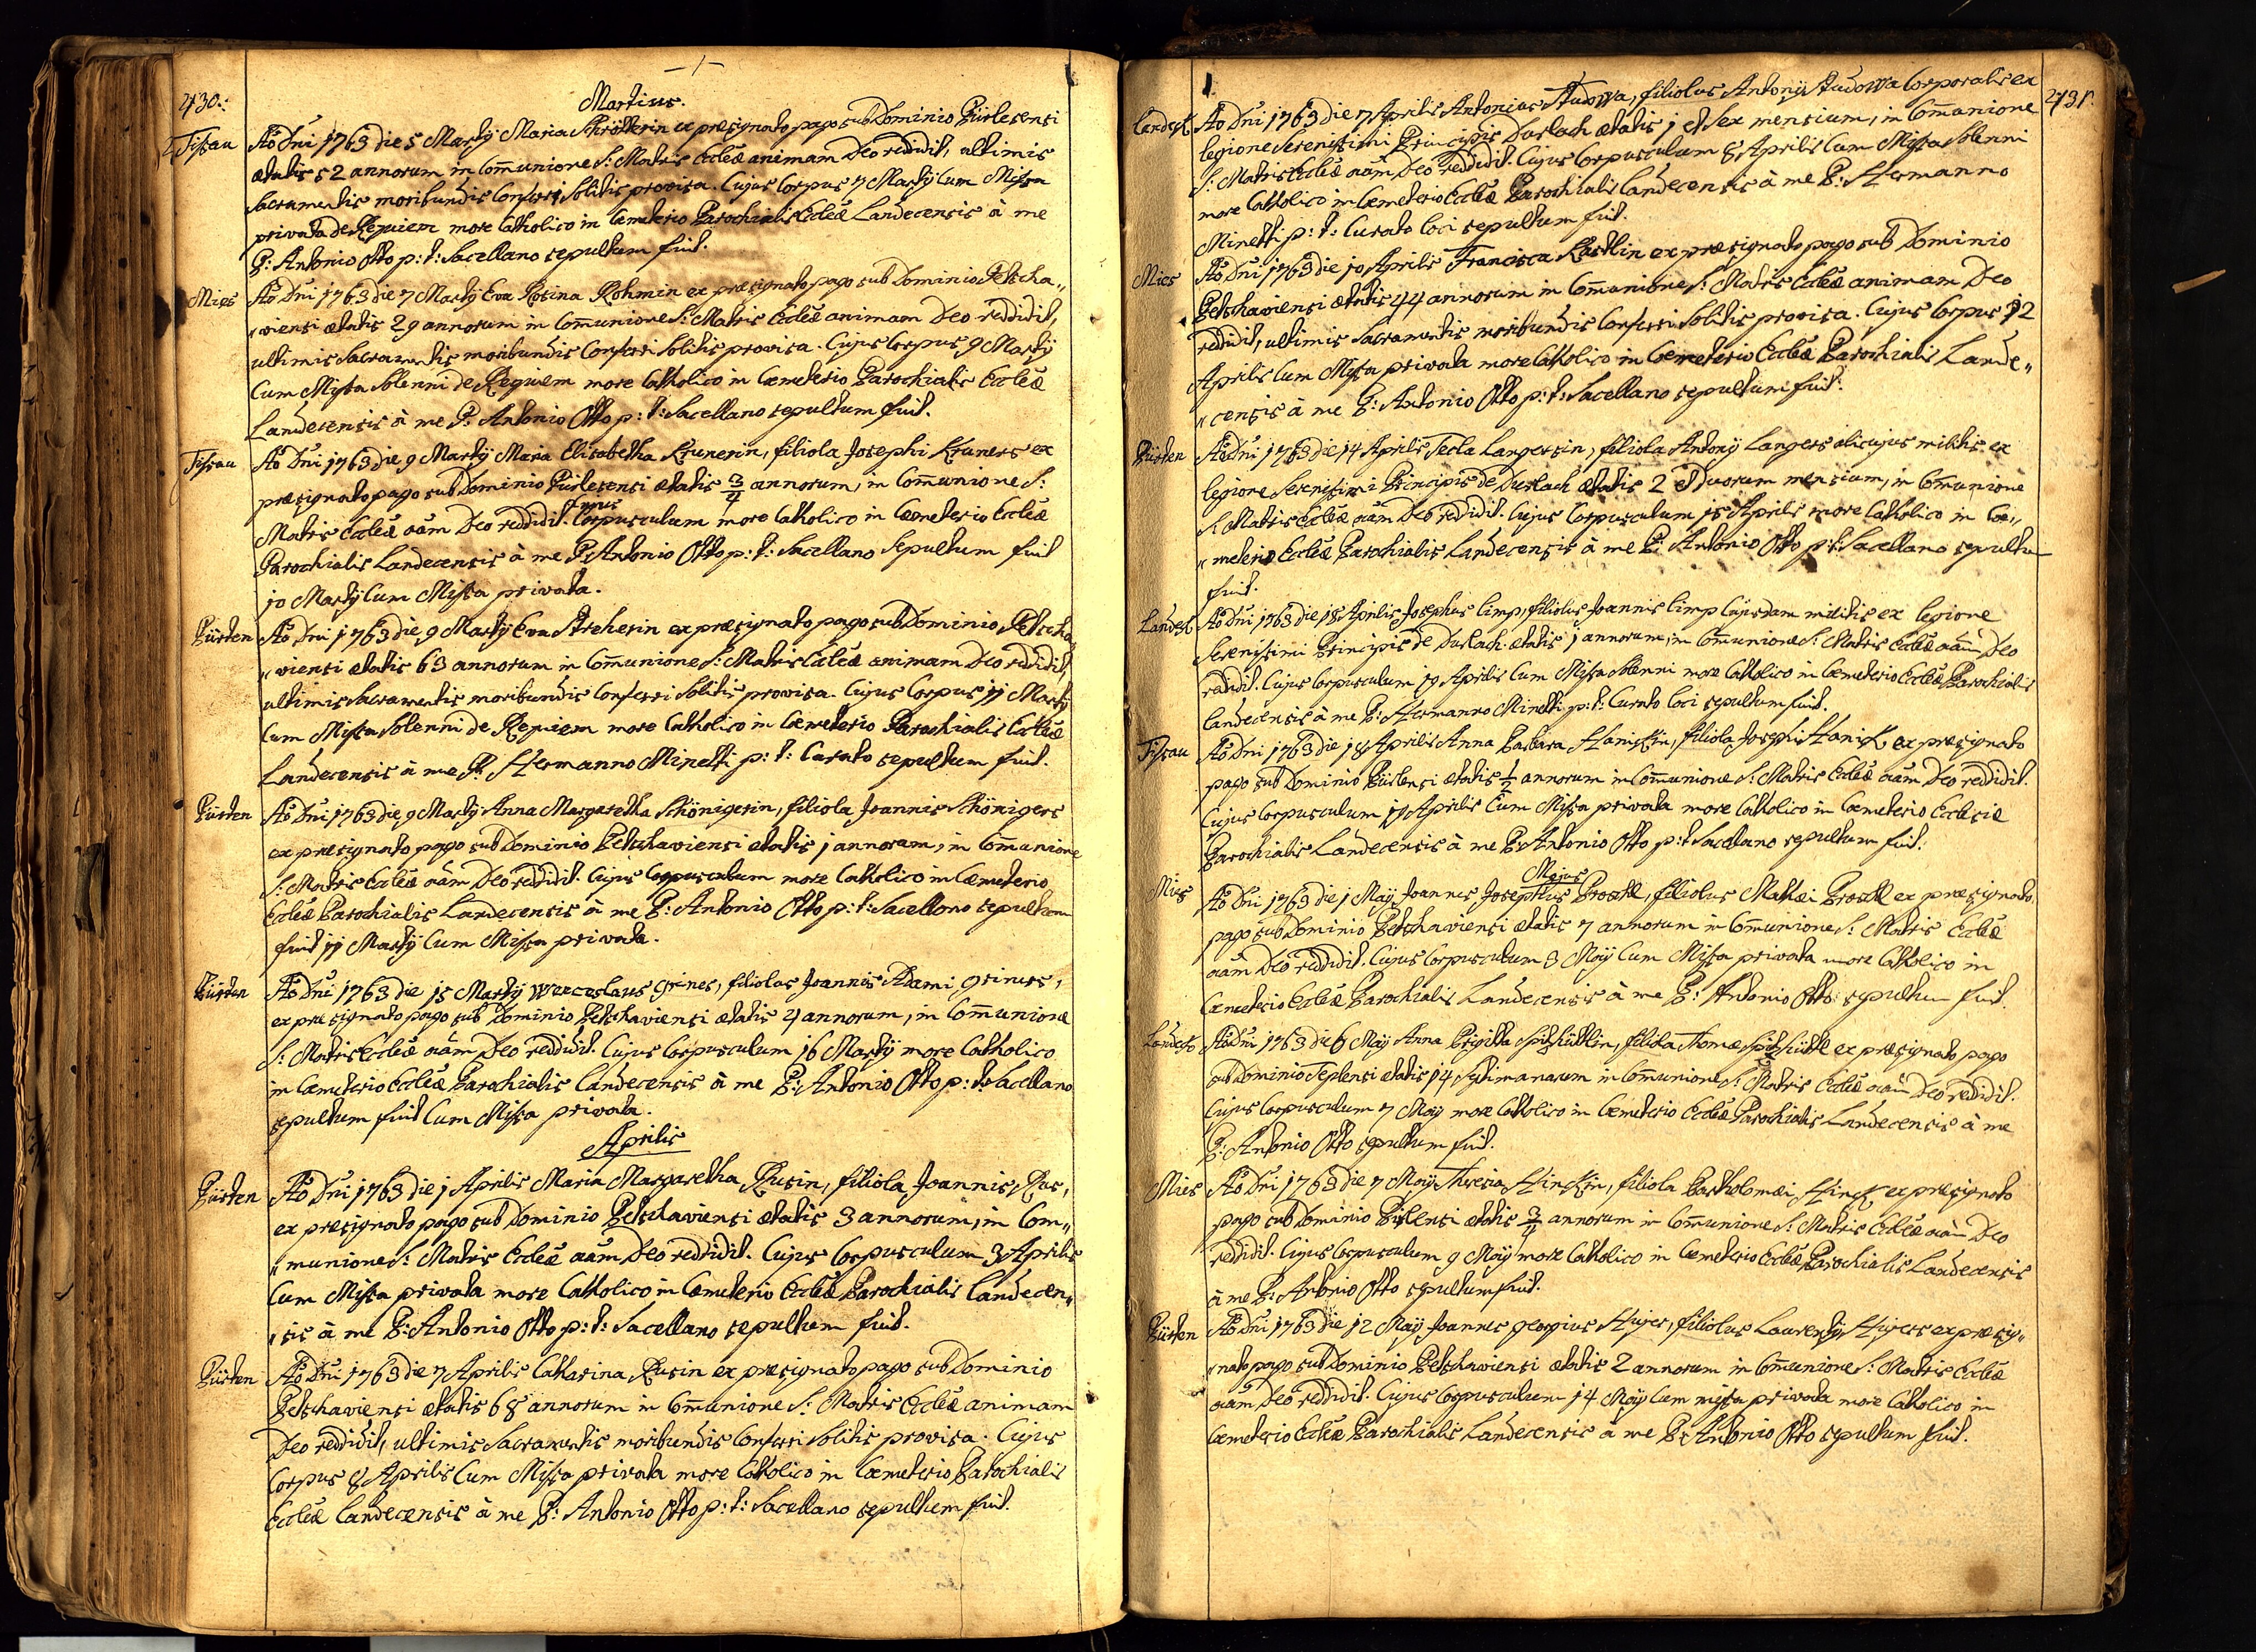 430.
Martius.
Tissau Ao Dni 1763 die 5 Martÿ Maria Schrötterin ex præsignato pago sub Dominio Pürlesensi
ætatis 52 annorum in Comunione S: Matris Eccleæ animam Deo reddidit, ultimis
Sacramentis moribundis Conferri Solitis provisa. Cujus Corpus 7 Martÿ Cum Missa
privata de Requiem more Catholico in Cæmeterio Parochialis Eccleæ Landecensis à me
P: Antonio Otto p: t: Sacellano sepultum fuit.
Mies Ao Dni 1763 die 7 Martÿ Eva Rosina Rohmin ex præsignato pago sub Dominio Petscha„
„viensi ætatis 29 annorum in Comunione S: Matris Eccleæ animam Deo reddidit,
ultimis Sacramentis moribundis Conferri Solitis provisa. Cujus Corpus 9 Martÿ
Cum Missa Solenni de Requiem more Catholico in Cæmeterio Parochialis Eccleæ
Landecensis à me P: Antonio Otto p: t: Sacellano sepultum fuit.
Tissau Ao Dni 1763 die 9 Martÿ Maria Elisabetha Krunerin, filiola Josephi Kruners ex
præsignato pago sub Dominio Pürlesensi ætatis 3/4 annorum, in Comunione S:
Matris Eccleæ aam Deo reddidit. Cujus Corpusculum more Catholico in Cæmeterio Eccleæ
Parochialis Landecensis à me P: Antonio Otto p: t: Sacellano Sepultum fuit
10 Martÿ Cum Missa privata.
Pürten Ao Dni 1763 die 9 Martÿ Eva Streherin ex præsignato pago sub Dominio Petscha
„viensi ætatis 63 annorum in Comunione S: Matris Eccleæ animam Deo reddidit,
ultimis Sacramentis moribundis Conferri Solitis provisa. Cujus Corpus 11 Martÿ
Cum Missa Solenni de Requiem more Catholico in Cæmeterio Parochialis Eccleæ
Landecensis à me P. Hermanno Minetti p: t: Curato sepultum fuit.
Pürten Ao Dni 1763 die 9 Martÿ Anna Margaretha Schönigerin, filiola Joannis Schönigers
ex præsignato pago sub Dominio Petschaviensi ætatis 1 annorum, in Comunione
S: Matris Eccleæ aam Deo reddidit. Cujus Corpusculum more Catholico in Cæmeterio
Eccleæ Parochialis Landecensis à me P: Antonio Otto p: t: Sacellano sepultum
fuit 11 Martÿ Cum Missa privata.
Pürten Ao Dni 1763 die 15 Martÿ Wenceslaus griner, filiolus Joannis Adami griners,
ex præsignato pago sub Dominio Petschaviensi ætatis 4 annorum, in Comunione
S: Matris Eccleæ aam Deo reddidit. Cujus Corpusculum 16 Martÿ more Catholico
in Cæmeterio Eccleæ Parochialis Landecensis à me P: Antonio Otto p: t: Sacellano
sepultum fuit Cum Missa privata.
Aprilis
Pürten Ao Dni 1763 die 1 Aprilis Maria Margaretha Rusin, filiola Joannis Rus,
ex præsignato pago sub Dominio Petschaviensi ætatis 3 annorum, in Com„
„munione S: Matris Eccleæ aam Deo reddidit. Cujus Corpusculum 3 Aprilis
Cum Missa privata more Catholico in Cæmeterio Eccleæ Parochialis Landecen„
„sis à me P: Antonio Otto p: t: Sacellano sepultum fuit.
Pürten Ao Dni 1763 die 7 Aprilis Catharina Rusin ex præsignato pago sub Dominio
Petschaviensi ætatis 68 annorum in Comunione S: Matris Eccleæ animam
Deo reddidit, ultimis Sacramentis moribundis Conferri Solitis provisa. Cujus
Corpus 8 Aprilis Cum Missa privata more Catholico in Cæmeterio Parochialis
Eccleæ Landecensis à me P: Antonio Otto p: t: Sacellano sepultum fuit.
431.
Landek Ao Dni 1763 die 7 Aprilis Antonius Studowa, filiolus Antonÿ Studowa Corporalis ex
legione Serenissimi Principis Durlach ætatis 1 et Sex mensium, in Comunione
S: Matris Eccleæ aam Deo reddidit. Cujus Corpusculum 8 Aprilis Cum Missa Solenni
more Catholico in Cæmeterio Eccleæ Parochialis Landecensis à me P: Hermanno
Minetti p: t: Curato loci sepultum fuit.
Mies Ao Dni 1763 die 10 Aprilis Francisca Kastlin ex præsignato pago sub Dominio
Petschaviensi ætatis 44 annorum in Comunione S: Matris Eccleæ animam Deo
reddidit, ultimis Sacramentis moribundis Conferri Solitis provisa. Cujus Corpus 12
Aprilis Cum Missa privata more Catholico in Cæmeterio Eccleæ Parochialis Lande„
„censis à me P: Antonio Otto p: t: Sacellano sepultum fuit.
Pürten Ao Dni 1763 die 14 Aprilis Tecla Langersin, filiola Antonÿ Langers alicujus militis ex
legione Serenissimi Principis de Durlach ætatis 2 et Duorum mensium, in Comunione
S: Matris Eccleæ aam Deo reddidit. Cujus Corpusculum 15 Aprilis more Catholico in Cæ„
„meterio Eccleæ Parochialis Landecensis à me P: Antonio Otto p: t: Sacellano sepultu
fuit.
Landek Ao Dni 1763 die 18 Aprilis Josephus limp, filiolus Joannis limp Cujusdam militis ex legione
Serenissimi Principis de Durlach ætatis 1 annorum, in Comunione S: Matris Eccleæ aam Deo
reddidit. Cujus Corpusculum 19 Aprilis Cum Missa Solenni more Catholico in Cæmeterio Eccleæ Parochialis
Landecensis à me P: Hermanno Minetti p: t: Curato loci sepultum fuit.
Tissau Ao Dni 1763 die 18 Aprilis Anna Barbara Haniskin, filiola Josephi Hanisk ex præsignato
pago sub Dominio Pürlensi ætatis 1/2 annorum in Comunione S: Matris Eccleæ aam Deo reddidit.
Cujus Corpusculum 19 Aprilis Cum Missa privata more Catholico in Cæmeterio Ecclesiæ
Parochialis Landecensis à me P: Antonio Otto p: t Sacellano sepultum fuit.
Majus
Mies Ao Dni 1763 die 1 Maÿ Joannes Josephus Proschl, filiolus Mathæi Proschl ex præsignato
pago sub Dominio Petschaviensi ætatis 7 annorum in Comunione S: Matris Eccleæ
aam Deo reddidit. Cujus Corpusculum 3 Maÿ Cum Missa privata more Catholico in
Cæmeterio Eccleæ Parochialis Landecensis à me P: Antonio Otto sepultum fuit.
Landek Ao Dni 1763 die 6 Maÿ Anna Brigitta Spitzhüttlin, filiola Thomæ Spitzhüttl ex præsignato pago
sub Dominio Teplensi ætatis 14 Septimanarum in Comunione S: Matris Eccleæ aam Deo reddidit.
Cujus Corpusculum 7 Maÿ more Catholico in Cæmeterio Eccleæ Parochialis Landecensis à me
P: Antonio Otto sepultum fuit.
Mies Ao Dni 1763 die 7 Maÿ Theresia Hinckin, filiola Bartholomæi Hinck ex præsignato
pago sub Dominio Pürlensi ætatis 3/4 annorum in Comunione S: Matris Eccleæ aam Deo
reddidit. Cujus Corpusculum 9 Maÿ more Catholico in Cæmeterio Eccleæ Parochialis Landecensis
à me P: Antonio Otto sepultum fuit.
Pürten Ao Dni 1763 die 12 Maÿ Joannes georgius Hujer, filiolus Laurentÿ Hujers ex præsig„
„nato pago sub Dominio Petschaviensi ætatis 2 annorum in Comunione S: Matris Eccleæ
aam Deo reddidit. Cujus Corpusculum 14 Maÿ Cum missa privata more Catholico in
Cæmeterio Eccleæ Parochialis Landecensis à me P: Antonio Otto sepultum fuit.